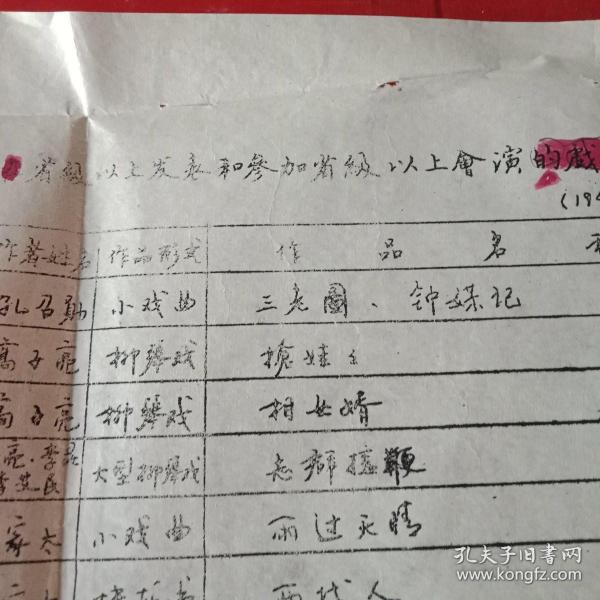 省级以上发表和参加省级以上會演的戲
(194
作者姓名 作品形式 作品名
孔召勛 小戏曲 三老圖、钟媒记
高子亮 柳琴戏 搶娃娃
高子亮 柳琴戏 相女婿
亮、李 大型柳琴戏
李芝民
家太 小戏曲 雨过天晴
两代人
孔夫子旧书网
www.kongfz.com